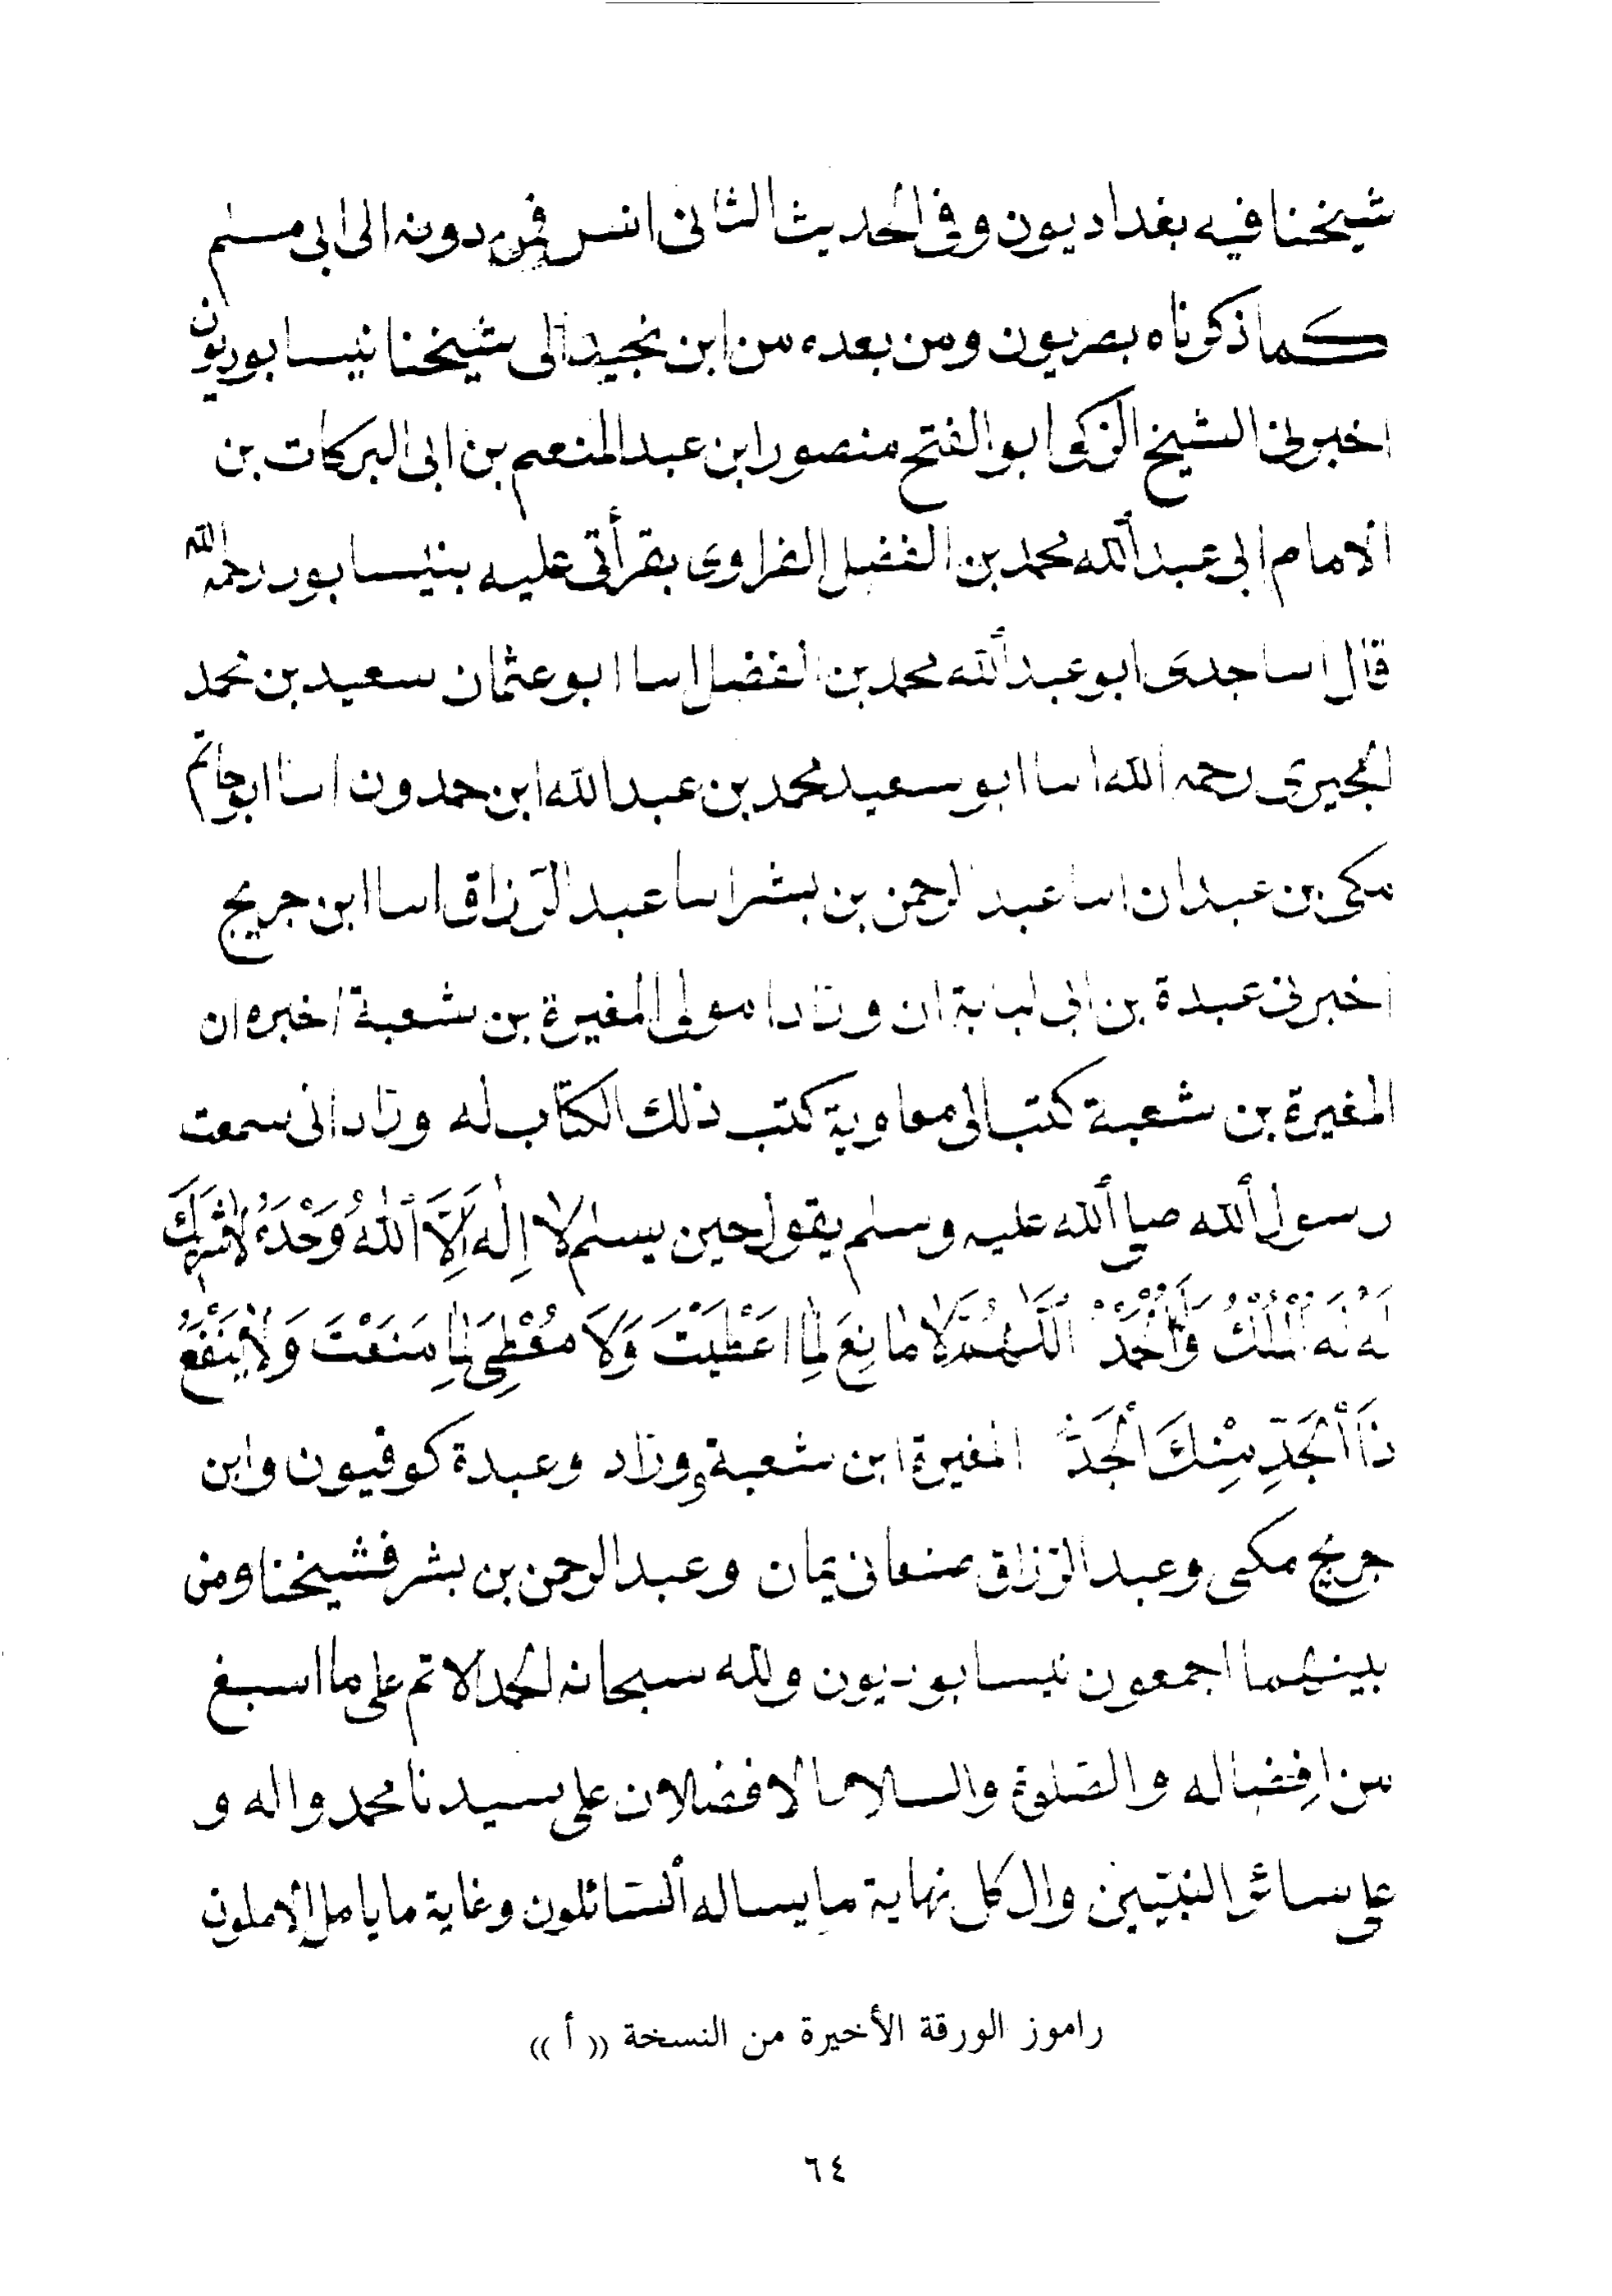 شيخنا فيه بغداديون وفى الحديث الثانى انس فمن دونه الى ابى مسلم
كما ذكرناه بصريون ومن بعده من ابن نجيد الى شيخنا نيسابوريون
اخبرنى الشيخ الزكى ابو الفتح منصور ابن عبد المنعم بن ابى البركات بن
الامام ابى عبد الله محمد بن الفضل الفراوى بقرأتى عليه بنيسابور رحمه الله
قال انبا جدى ابو عبد الله محمد بن الفضل انبا ابو عثمان سعيد بن محمد
البحيرى رحمه الله انبا ابو سعيد محمد بن عبد الله ابن حمدون انبا ابو حاتم
مكى بن عبدان انبا عبد الرحمن بن بشر انبا عبد الرّزاق انبا ابن جريج
اخبرنى عبدة بن ابى لبابة ان ورّادا مولى المغيرة بن شعبة اخبره ان
المغيرة بن شعبة كتب الى معاوية كتب ذلك الكتاب له ورّاد انى سمعت
رسول الله صلى الله عليه وسلم يقول حين يسلم لا إِلٰهَ اِلَّا اللّٰهُ وَحْدَهُ لَا شَرِيكَ
لَهُ لَهُ الْمُلْكُ وَلَهُ الْحَمْدُ اَللّٰهُمَّ لَا مَانِعَ لِمَا اَعْطَيْتَ وَلَا مُعْطِىَ لِمَا مَنَعْتَ وَلَا يَنْفَعُ
ذَا الْجَدِّ مِنْكَ الْجَدُّ المغيرة ابن شعبة وورّاد وعبدة كوفيون وابن
جريج مكى وعبد الرّزاق صنعانى يمان وعبد الرحمن بن بشر فشيخنا ومن
بينهما اجمعون نيسابوريون ولله سبحانه الحمد الاتم على ما اسبغ
من اِفضاله والصّلوة والسلام الافضلان على سيدنا محمد واله و
على سائر النبيّين وال كل نهاية ما يساله السّائلون وغاية ما يامل الاملون
راموز الورقة الأخيرة من النسخة (( أ ))
٦٤